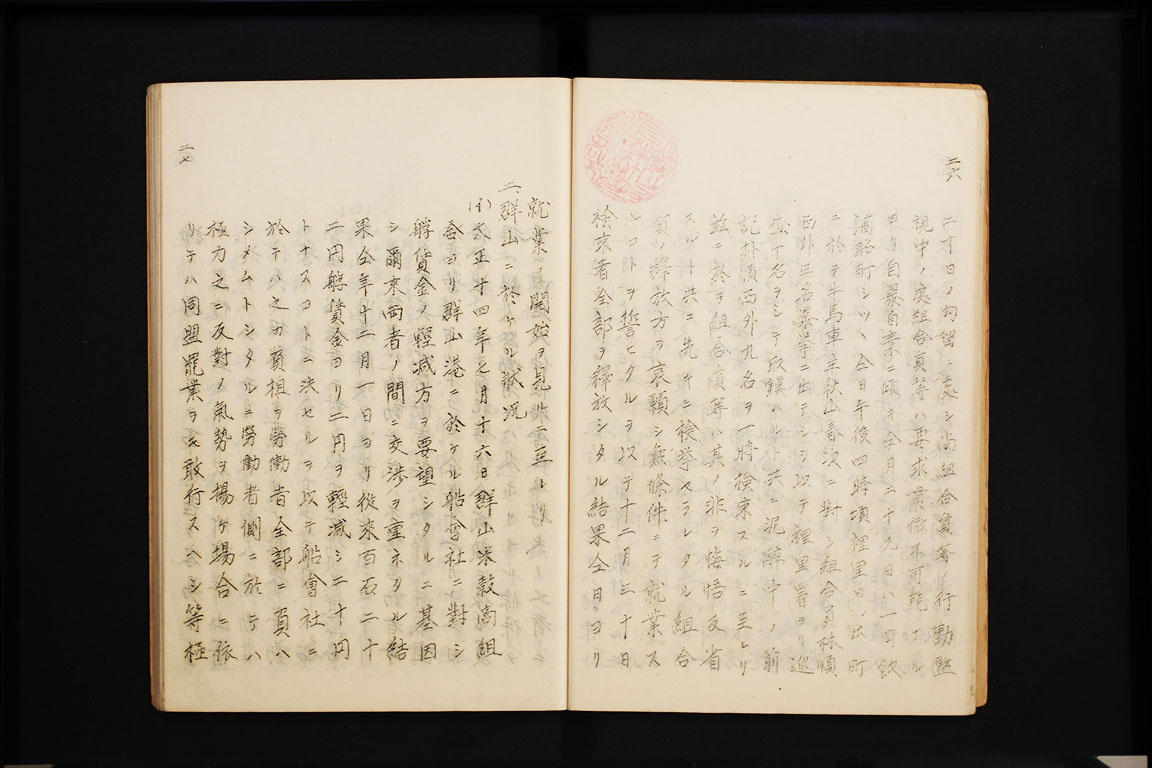 二六
二十日ノ拘留ニ處シ尚組合員等ノ行動監
視中ノ處組合員等ハ要求貫徹不可能ナル
ヨリ自暴自棄ニ傾キ仝月二十九日ハ一同飲
酒酩酊シツヽ仝日午後四時頃裡里日ノ出町
ニ於テ牛馬車主秋山春次ニ對シ組合員林順
西外三名暴挙ニ出テシヲ以テ裡里署ヨリ巡
査十名ヲシテ取鎮ムルト共ニ泥酔中ノ前
記朴順西外九名ヲ一時検束スルニ至レリ
茲ニ於テ組合員等ハ其ノ非ヲ悔悟反省
スルト共ニ先キニ検挙セラレタル組合
員ノ釋放方ヲ哀願シ無條件ニテ就業ス
ルコトヲ誓ヒタルヲ以テ十二月三十日
検束者全部ヲ釋放シタル結果仝日ヨリ
就業ノ開始ヲ見ルニ至レリ
二、群山ニ於ケル状况
(イ)大正十四年七月十六日群山米穀商組
合ヨリ群山港ニ於ケル船會社ニ對シ
艀賃金ノ輕減方ヲ要望シタルニ基因
シ爾來両者ノ間ニ交渉ヲ重ネタル結
果仝年十二月一日ヨリ從來百石二十
二円艀賃金ヨリ二円ヲ輕減シ二十円
トナスコトニ决セルヲ以テ船會社ニ
於テハ之カ負担ヲ勞働者全部ニ負ハ
シメムトシタルニ勞働者側ニ於テハ
極力之ニ反對ノ氣勢ヲ揚ケ場合ニ依
リテハ同盟罷業ヲモ敢行スヘシ等極
二七